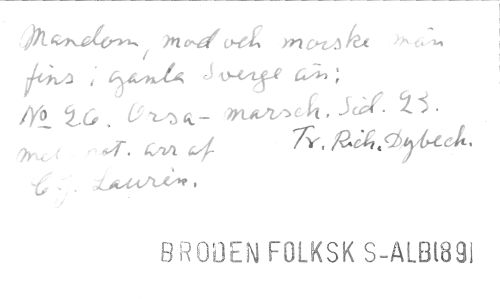 Mandom, mod och morske män
fins i gamla Sverge än;
No 26. Orsa-marsch. Sid. 23.
mel. not. arr af Tr. Rich. Dybeck.
C. J. Laurin.
BRODEN FOLKSK S-ALB(89)